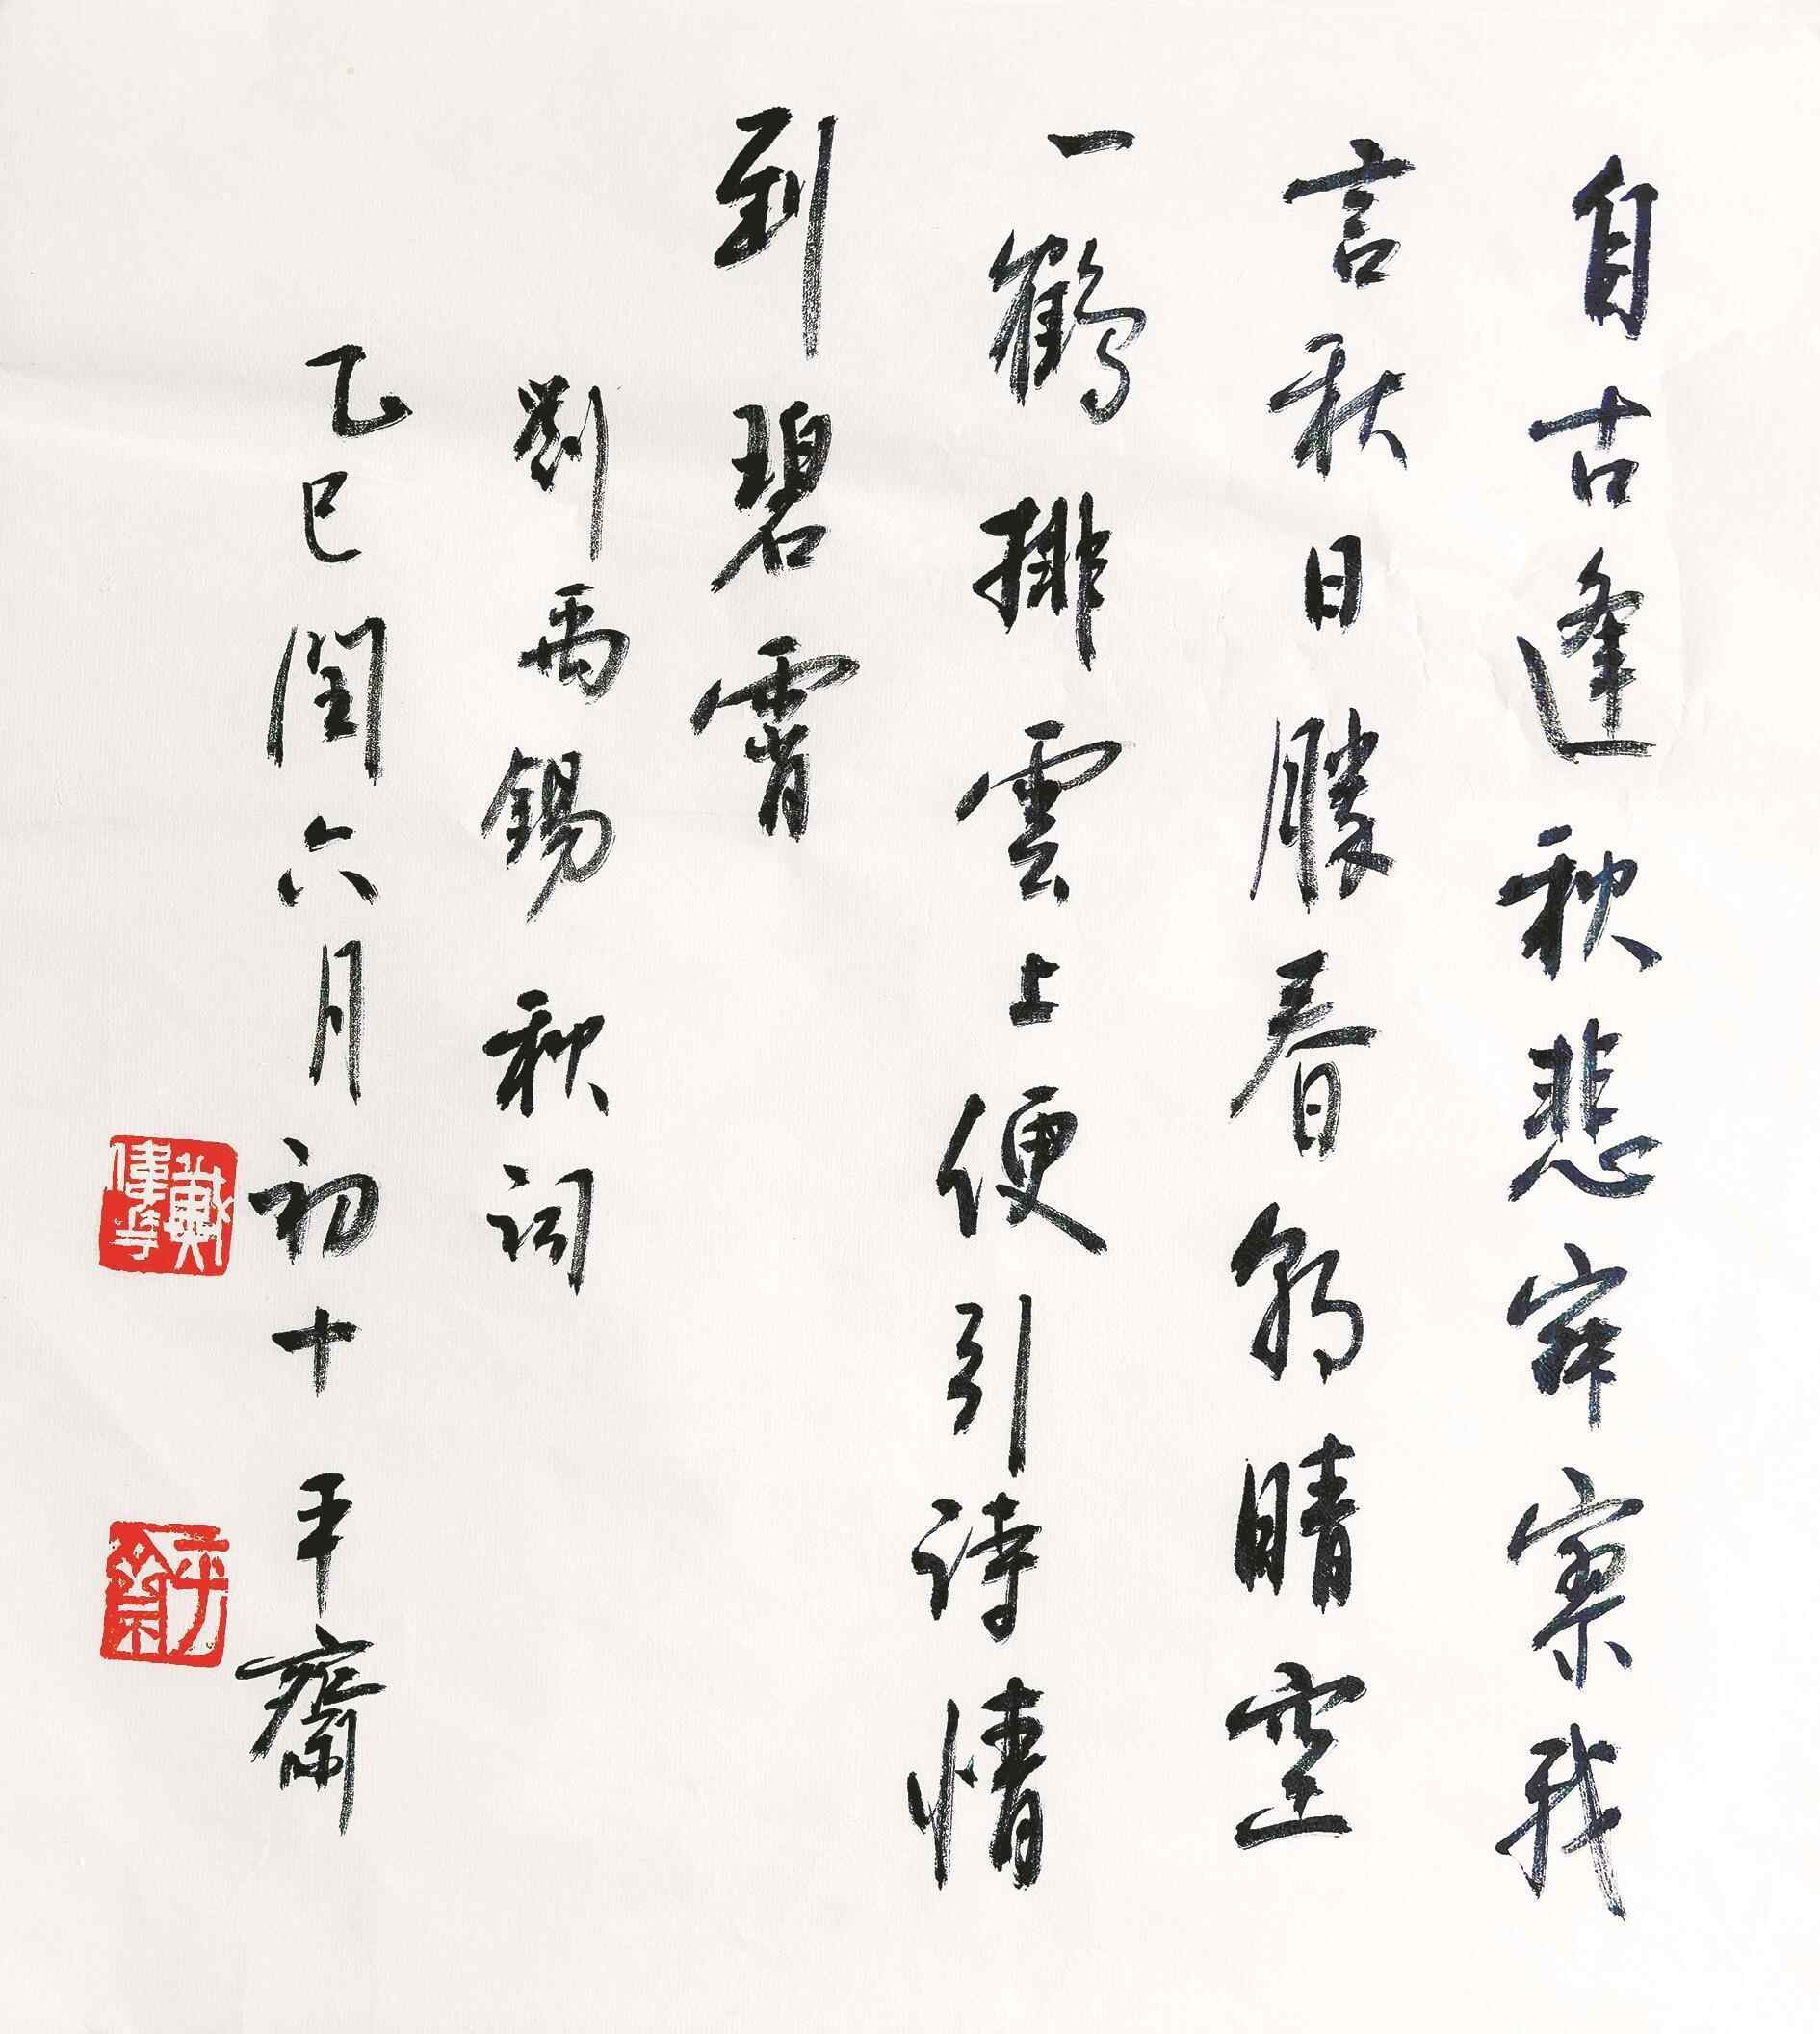 自古逢秋悲寂寥我
言秋日勝春朝晴空
一鶴排雲上便引詩情
到碧霄
劉禹錫秋詞
乙巳閏六月初十平齋
戴偉華
平齋